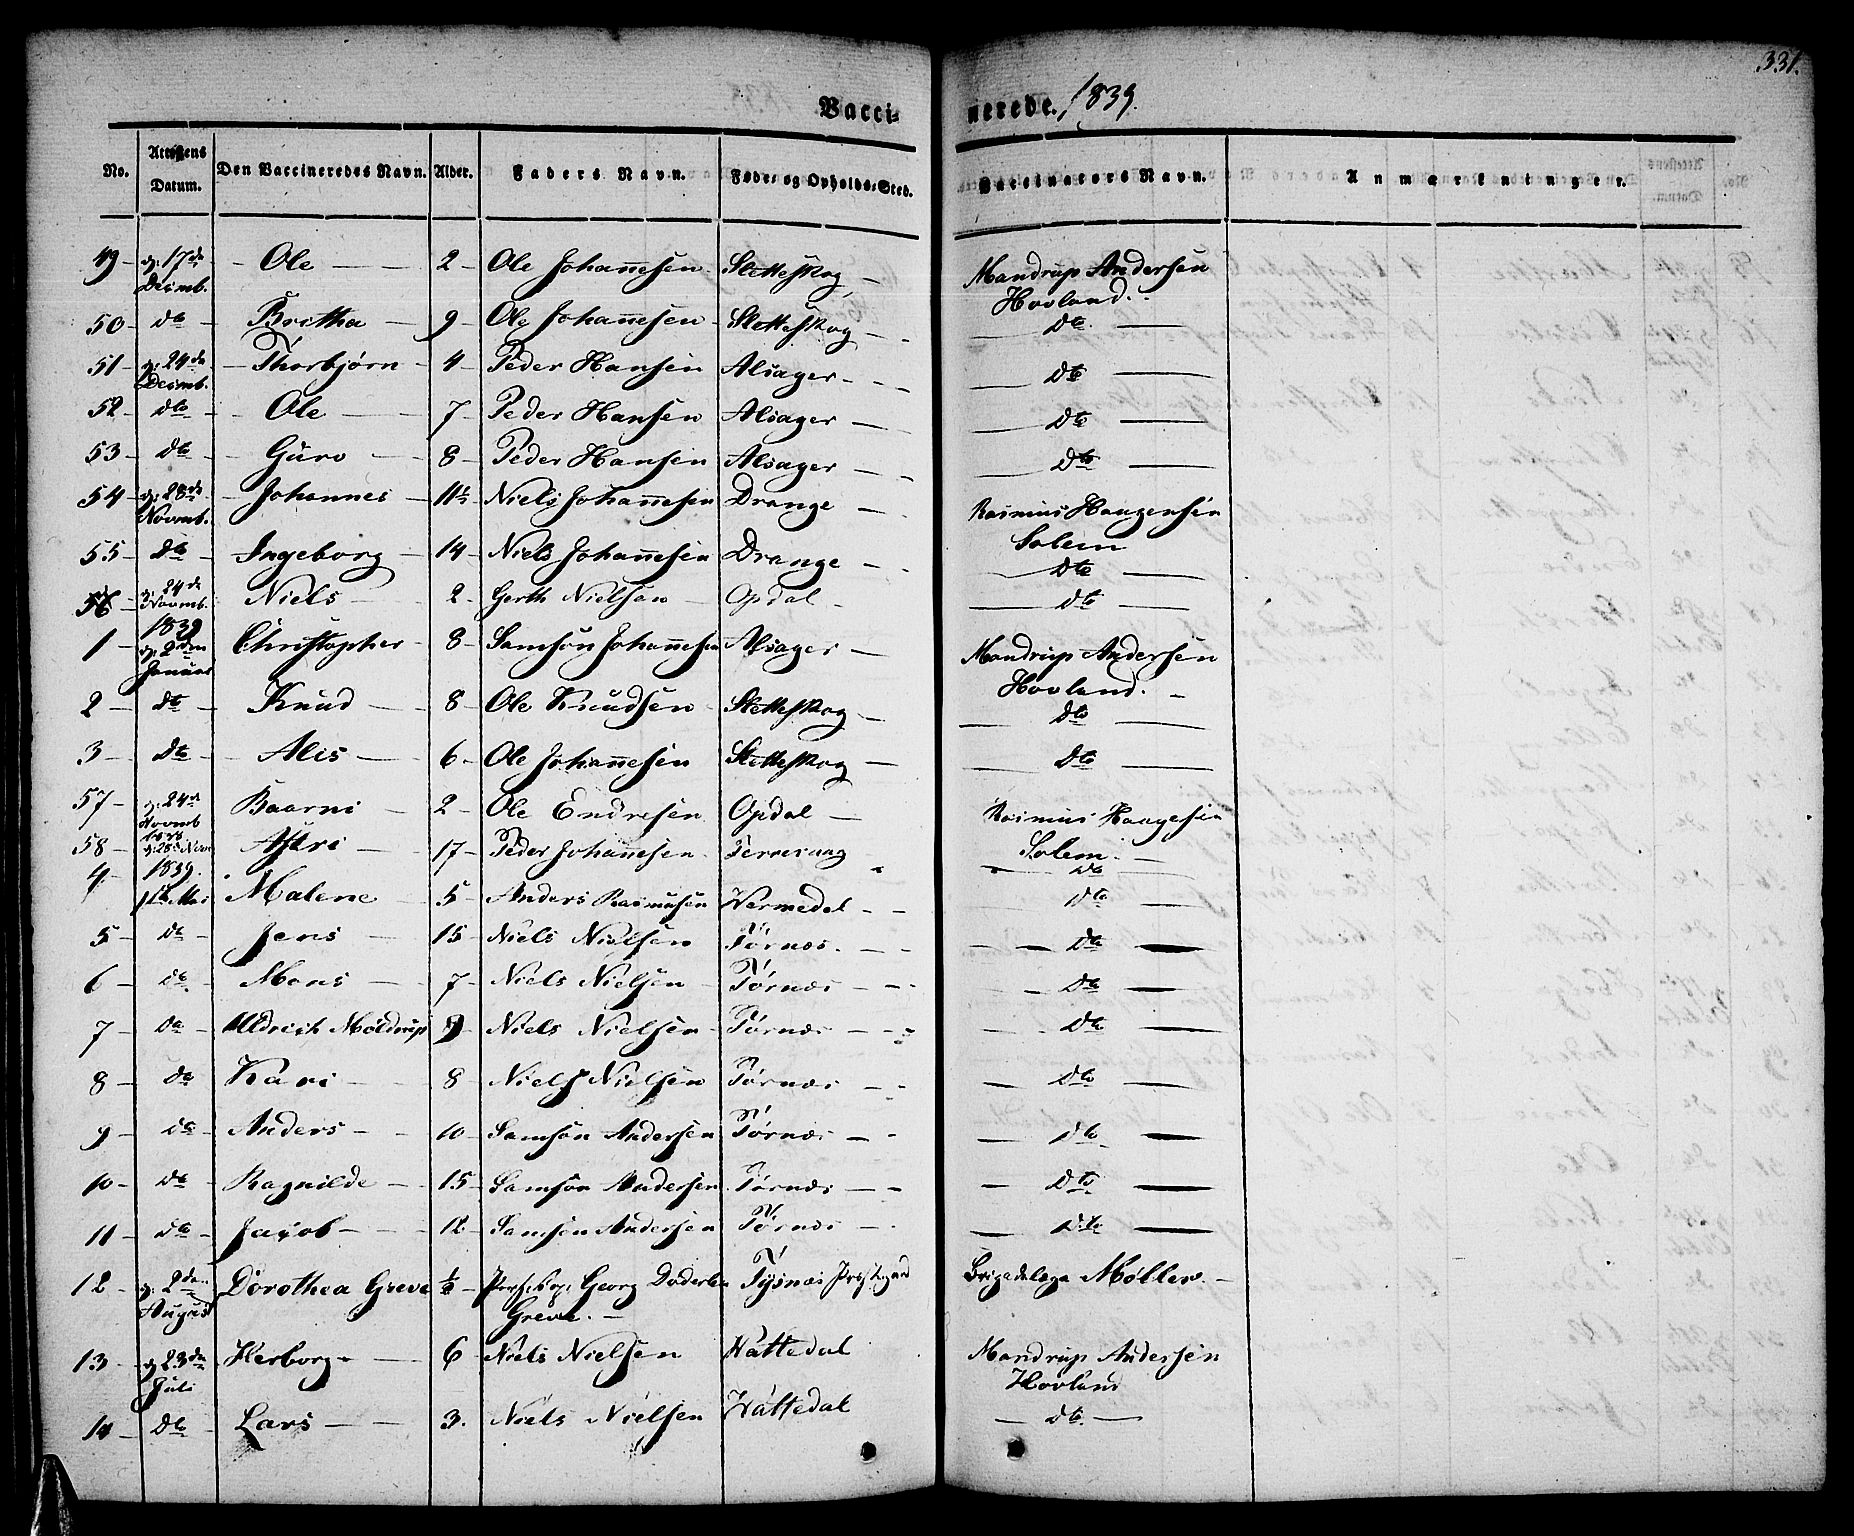 331.
Vaccinerede. 1839.
No. Attestens Datum. Den Vaccineredes Navn. Alder. Faders Navn. Føde- og Opholds-Sted. Vaccinators Navn. Anmærkninger.
49 - d: 17de Decmb. - Ole - 2 - Ole Johannesen Sletteskog - Mandrup Andersen Hovland.
50 - do - Britha - 9 - Ole Johannesen - Sletteskog - Do
51 - d: 24de Decmb. - Thorbjørn - 4 - Peder Hansen Alsager - Do
52 - dto - Ole - 7 - Peder Hansen Alsager - Do
53 - do - Guro - 8 - Peder Hansen - Alsager - Do
54 - d: 28de Novmb. - Johannes - 11½ - Niels Johannesen Drange - Rasmus Haagensen Solem
55 - Do - Ingeborg - 14 - Niels Johannesen Drange - Dto
56 - d: 24de Novmb. Niels - 2 - Gerth Nielsen - Opdal - Do
1 - 1839 d: 2den Januar Christopher - 8 - Samson Johannesen Alsager - Mandrup Andersen Hovland.
2 - Do - Knud - 8 - Ole Knudsen - Sletteskog - Do
3 - Do - Alis - 6 - Ole Johannesen Sletteskog - Do
57 - d: 24de Novmb Baarni - 2 - Ole Endresen Opdal - Rasmus Haagesen Solem.
58 - d: 28d Nov Astri - 17 - Peder Johannesen Do
4 - 1839. Mai Malene - 5 - Anders Rasmusen Vermedal - Do
5 - Do - Jens - 15 - Niels Nielsen Tørnæs. - Do
6 - Do - Mons - 7 - Niels Nielsen - Tørnæs - Do
7 - Do - Uldrich Møldrup 9 - Niels Nielsen - Tørnæs - Do
8 - Do - Kari - 8 - Niels Nielsen Tørnæs - Do
9 - Do - Anders - 10 - Samson Andersen Tørnæs - Do
10 - Do - Ragnilde - 15 - Samson Andersen Tørnæs - Do
11 - Do - Jacob - 12 - Samson Andersen Tørnæs - Do
12 - d: 2den August Dorothea Greve ½ - Georg Døderlein Greve. - Tysnæs Brigadelæge Møller. -
13 - d: 23de Juli - Herborg - 6 - Niels Nielsen Hattedal Mandrup Andersen Hovland
14 - Do - Lars - 3. Niels Nielsen Hattedal - Do. -